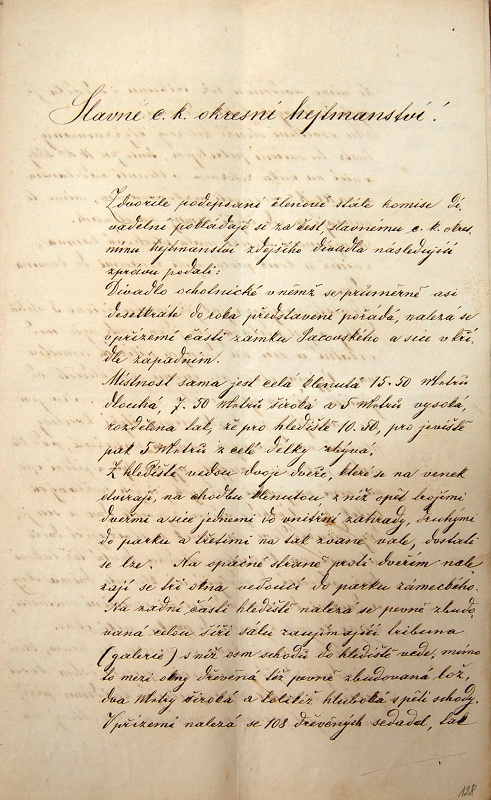 Slavné c. k. okresní hejtmanství!
Zdvořile podepsaní členové stálé komise di-
vadelní pokládají si za čest, slavnému c. k. okres-
nímu hejtmanství zdejšího divadla následující
zprávu podati:
Divadlo ochotnické v němž se průměrně asi
desetkráte do roka představení pořádá, nalezá se
v přízemí části zámku Pacovského a sice v kří-
dle západním.
Místnost sama jest celá klenutá 15.50 Metrů
dlouhá, 7.50 Metrů široká a 5 Metrů vysoká,
rozdělena tak, že pro hlediště 10.50, pro jeviště
pak 5 Metrů z celé délky zbývá.
Z hlediště vedou dvoje dveře, které se na venek
otvírají, na chodbu klenutou z níž opět trojími
dveřmi a sice jedněmi do vnitřní zahrady, druhými
do parku a třetími na tak zvané vale, dostati
se lze. Na opačné straně proti dveřím nale-
zají se tři okna vedoucí do parku zámeckého.
Na zadní části hlediště nalezá se pevně zbudo-
vaná celou šíři sálu zaujímající tribuna
(galerie) s níž osm schodů do hlediště vede, mimo
to mezi okny dřevěná též pevně zbudovaná lož,
dva Metry široká a tolikéž hluboká s pěti schody.
V přízemí nalezá se 108 dřevěných sedadel, tak
128